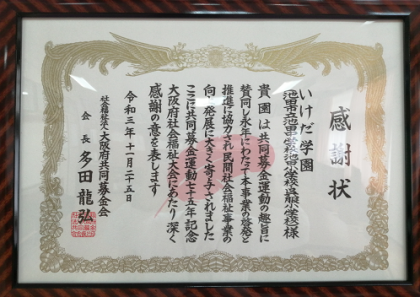 感謝状
いけだ学園
貴園は共同募金運動の趣旨に
賛同し永年にわたって本事業の啓発と
推進に協力され民間社会福祉事業の
向上発展に大きく寄与されました
ここに共同募金運動七十五年記念
大阪府社会福祉大会にあたり深く
感謝の意を表します
令和三年十一月二十五日
社会福祉法人大阪府共同募金会
会長 多田龍弘